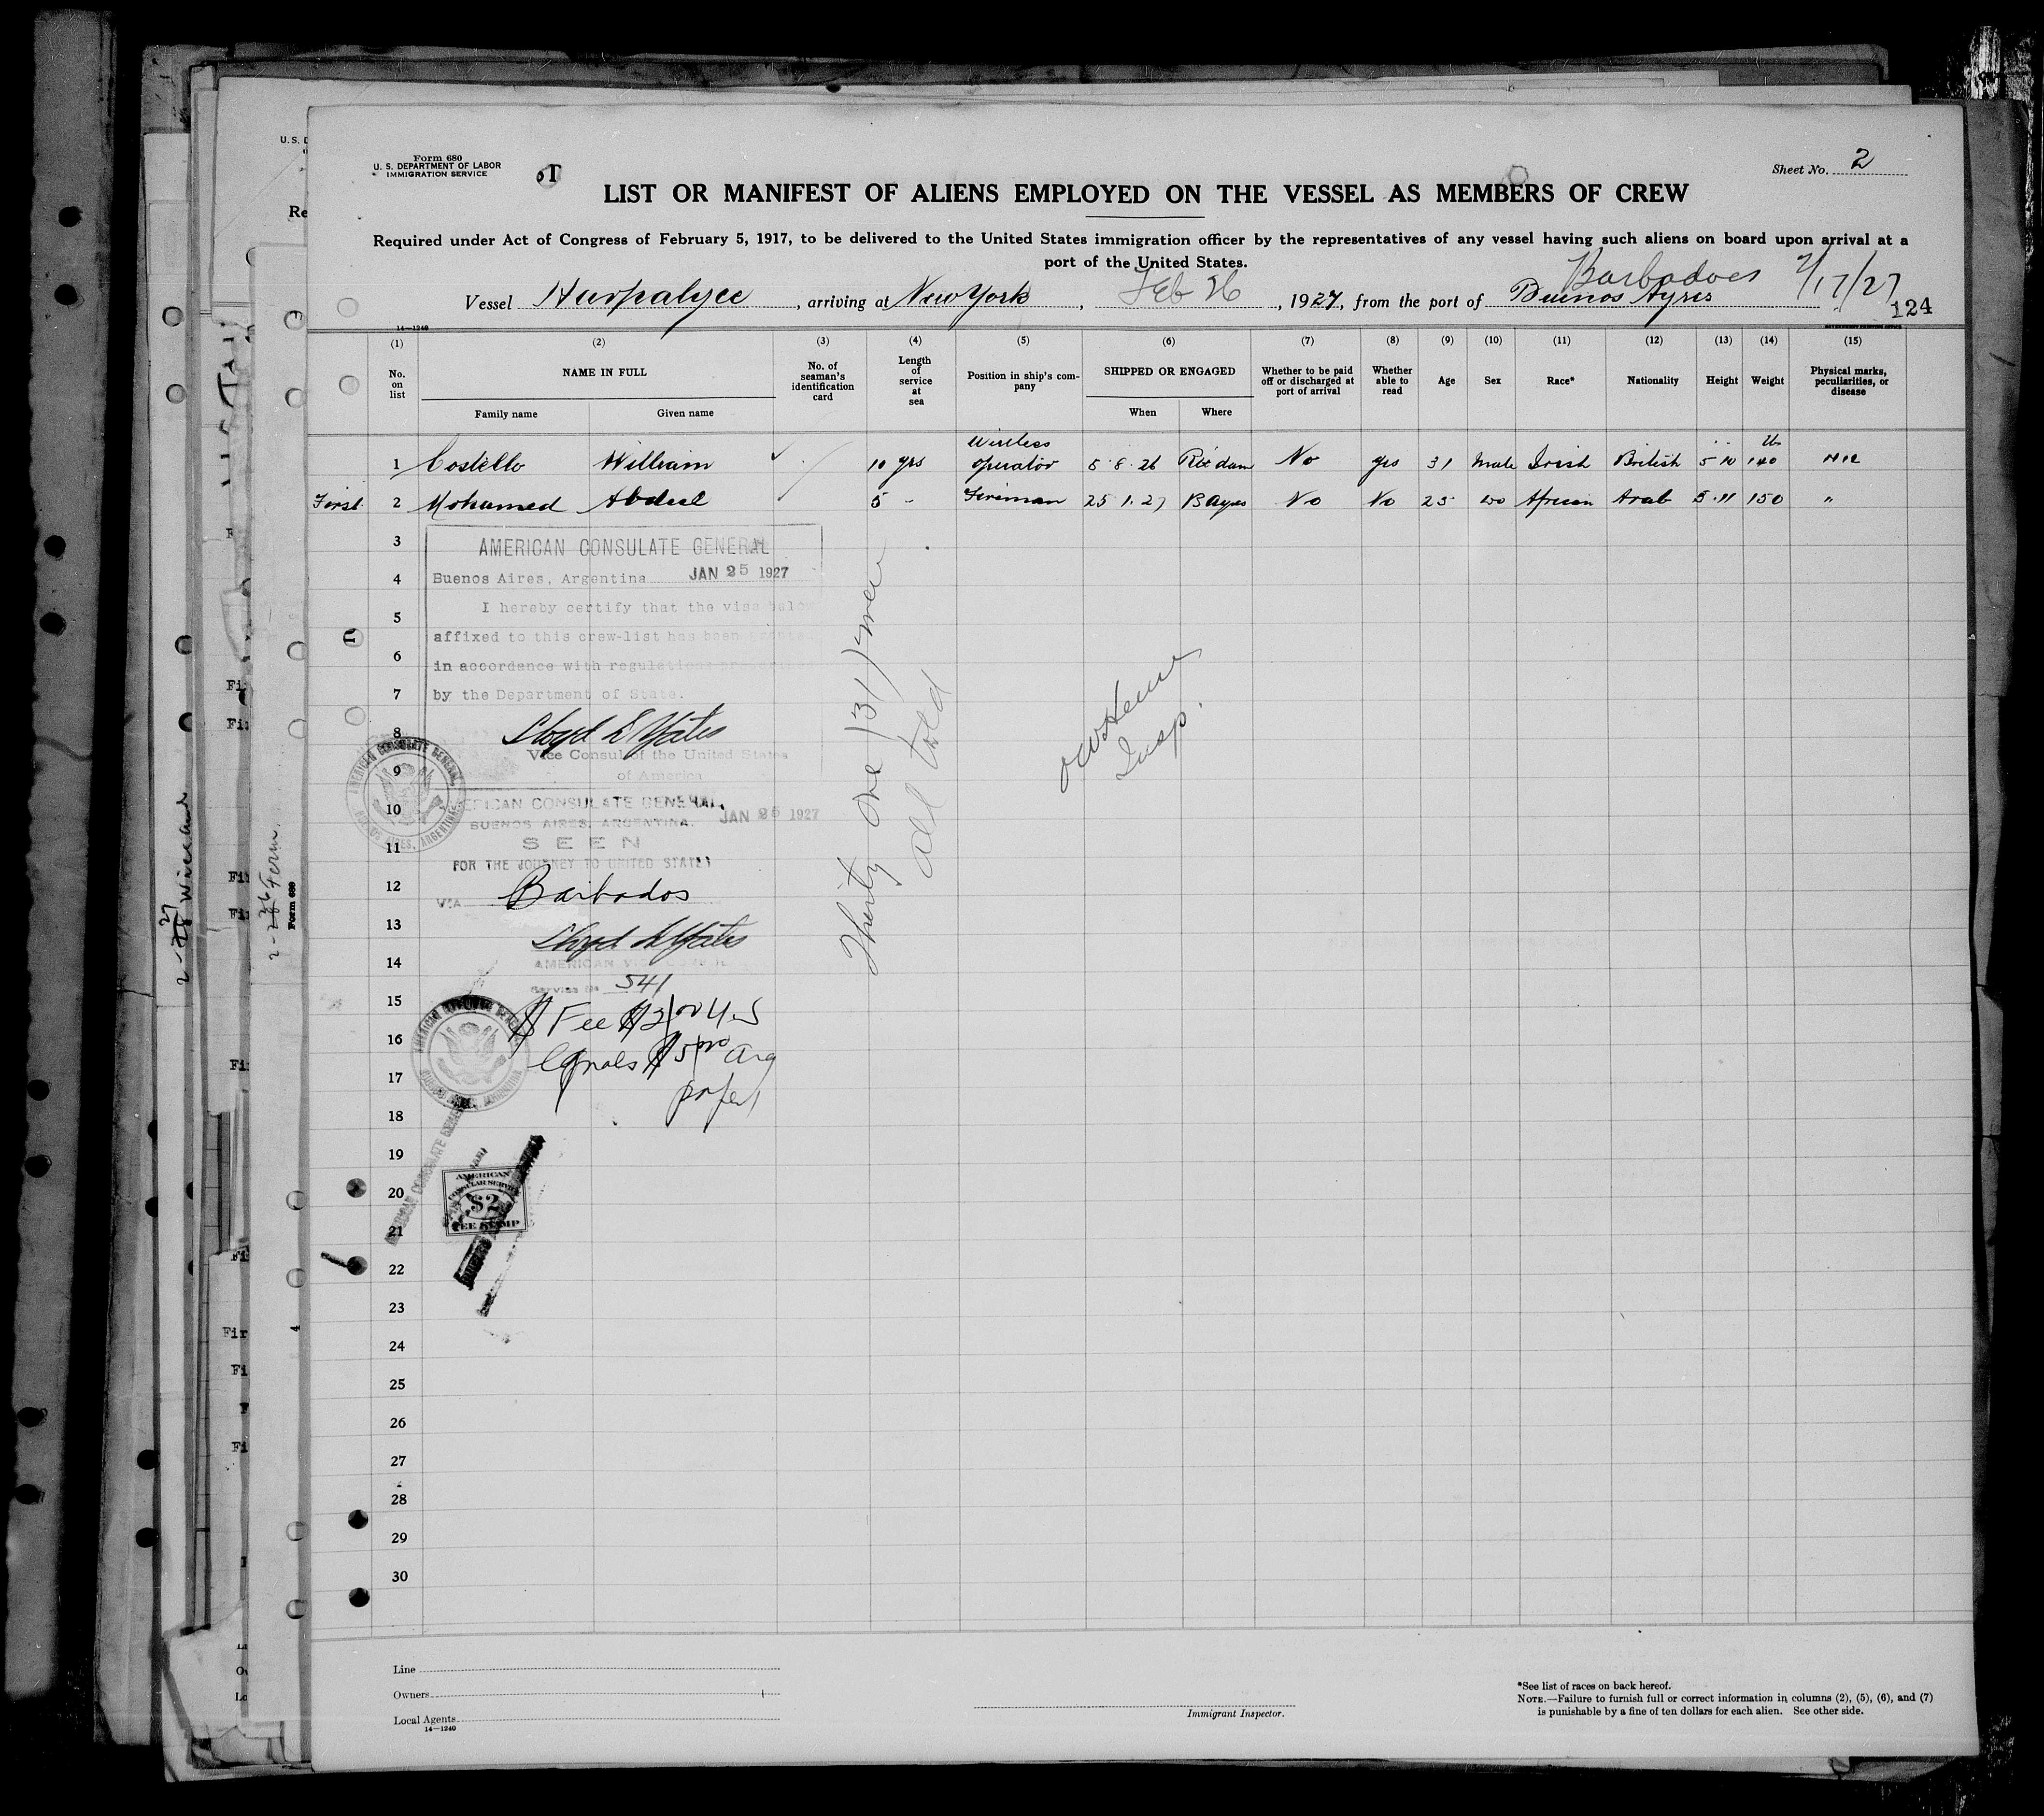 Form 680
U. S. DEPARTMENT OF LABOR
IMMIGRATION SERVICE
Sheet No. 2
LIST OR MANIFEST OF ALIENS EMPLOYED ON THE VESSEL AS MEMBERS OF CREW
Required under Act of Congress of February 5, 1917, to be delivered to the United States immigration officer by the representatives of any vessel having such aliens on board upon arrival at a
port of the United States.
Barbadoes 2/17/27
Vessel Harpalyce, arriving at New York, Feb 26, 1927, from the port of Buenos Ayres
124
14—1240
(1) (2) (3) (4) (5) (6) (7) (8) (9) (10) (11) (12) (13) (14) (15)
No. on list NAME IN FULL No. of seaman's identification card Length of service at sea Position in ship's company SHIPPED OR ENGAGED Whether to be paid off or discharged at port of arrival Whether able to read Age Sex Race* Nationality Height Weight Physical marks, peculiarities, or disease
Family name Given name When Where
1 Costello William 10 yrs Wireless operator 5 8 26 R'dam No yes 31 Male Irish British 5 10 140
First 2 Mohamed 5 - Fireman 25 1. 27 B Ayres No No 25 do African Arab 5.11 150 "
3
AMERICAN CONSULATE GENERAL
4
Buenos Aires, Argentina JAN 25 1927
5
I hereby certify that the visa below
affixed to this crew-list has been
6
in accordance with regulations
7
by the Department of State.
8
Lloyd D Yates
Vice Consul of the United States
of America
9
10
AMERICAN CONSULATE GENERAL
BUENOS AIRES, ARGENTINA. JAN 25 1927
11
SEEN
FOR THE JOURNEY TO UNITED STATES
12
VIA Barbados
13
Lloyd D Yates
14
AMERICAN VICE CONSUL
Service No 541
15
Fee $2/00 U S
16
Equals Arg
17
18
19
20
21
22
23
24
25
26
27
28
29
30
Thirty one (31) men
all told
Insp.
AMERICAN CONSULATE GENERAL
BUENOS AIRES, ARGENTINA
AMERICAN
CONSULAR SERVICE
$2
FEE STAMP
Line
Owners
Local Agents
14—1240
Immigrant Inspector.
*See list of races on back hereof.
NOTE.—Failure to furnish full or correct information in columns (2), (5), (6), and (7)
is punishable by a fine of ten dollars for each alien. See other side.